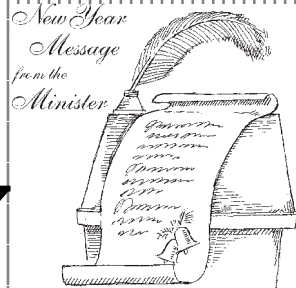 New Year
Message
from the
Minister